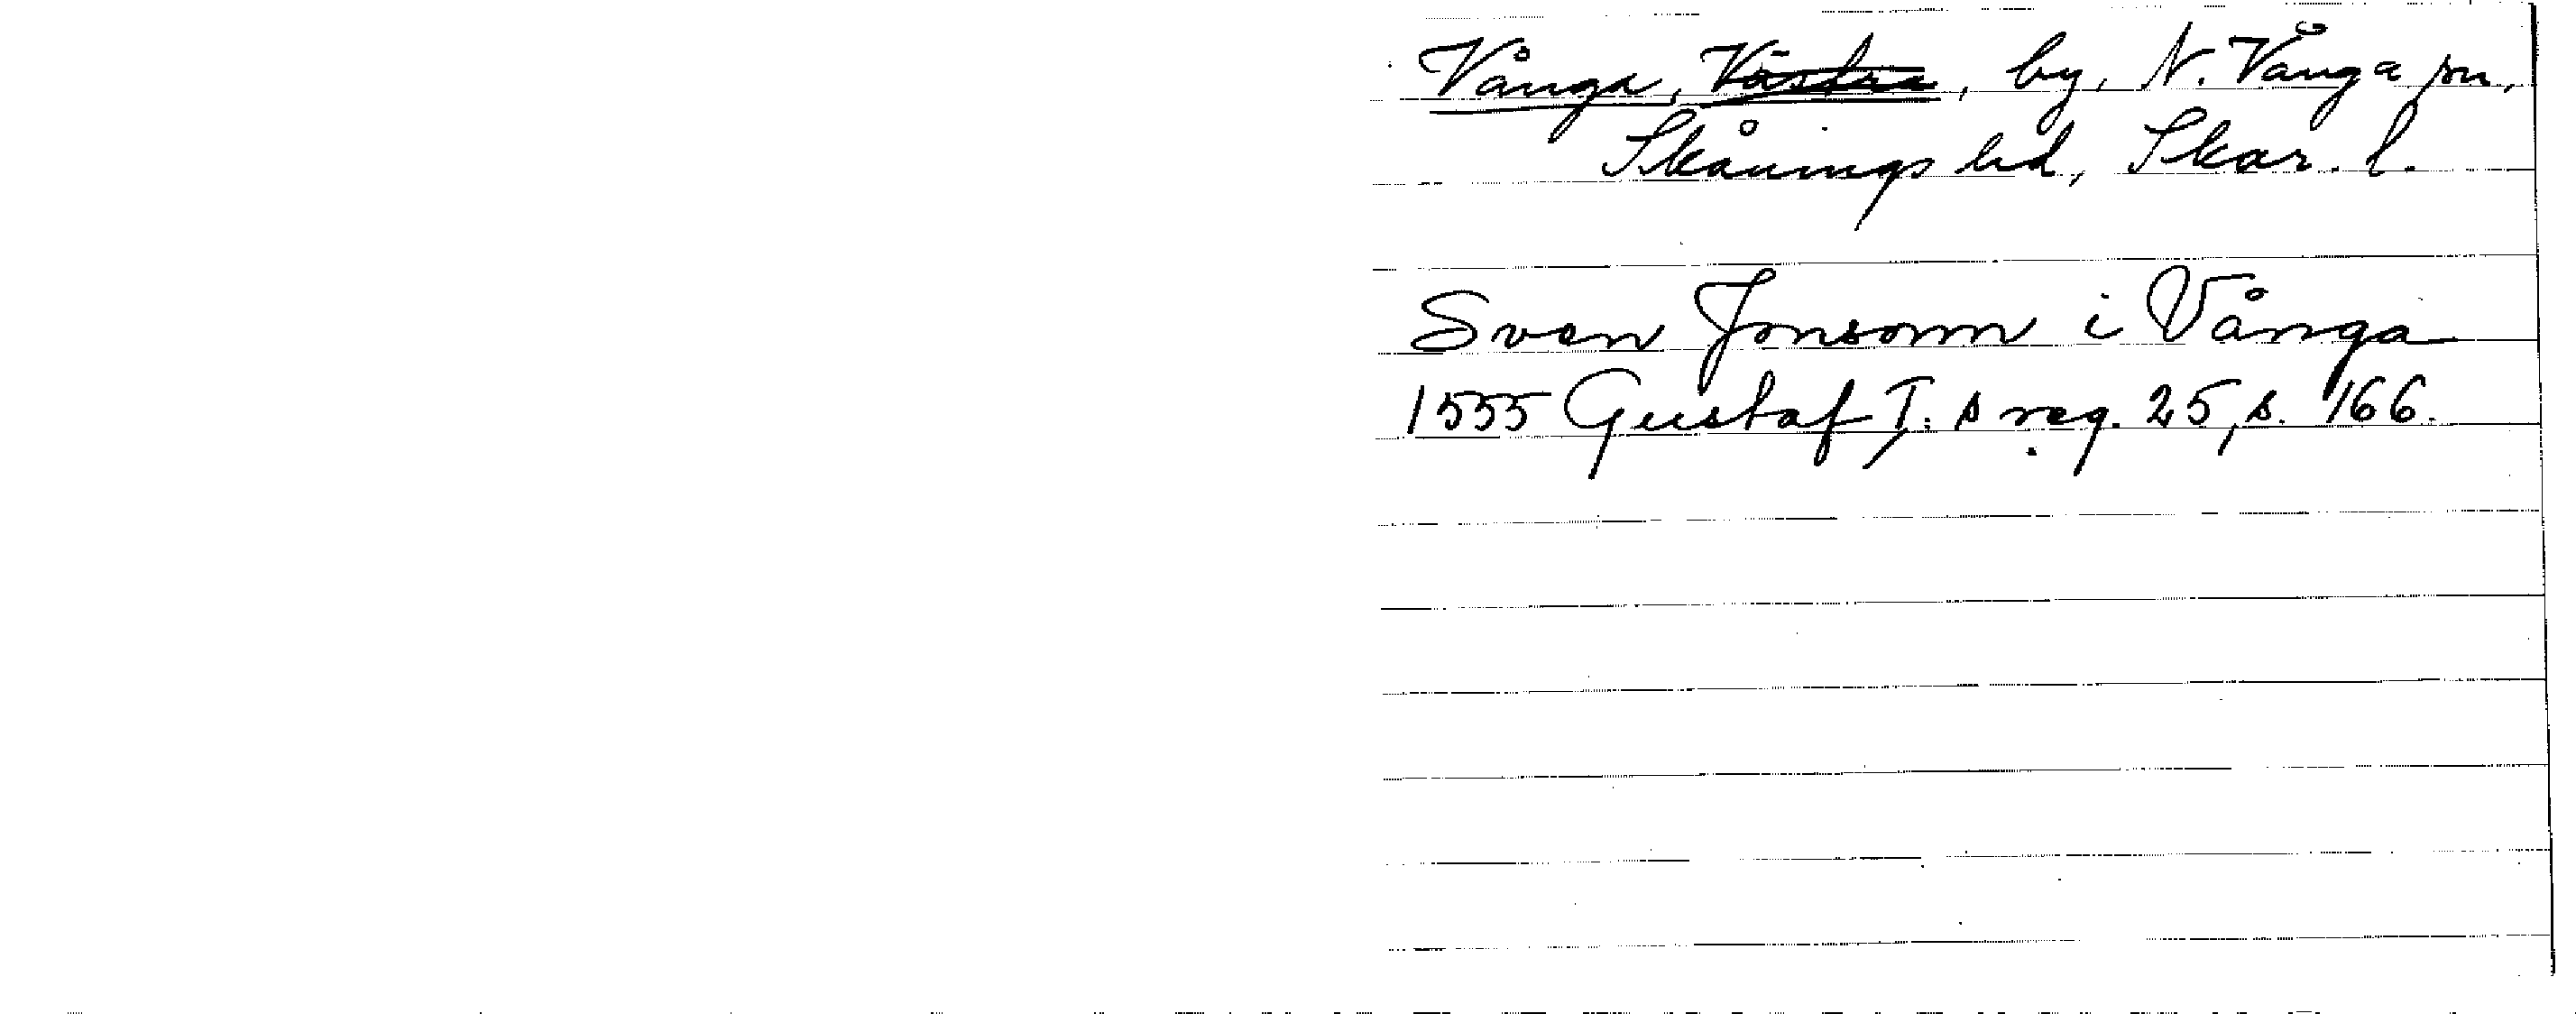 Vånga, Västra, by, N. Vånga sn,
Skånings hd, Skar. l.
Sven Jonsonn i Vånga
1555 Gustaf I:s reg. 25, s. 166.